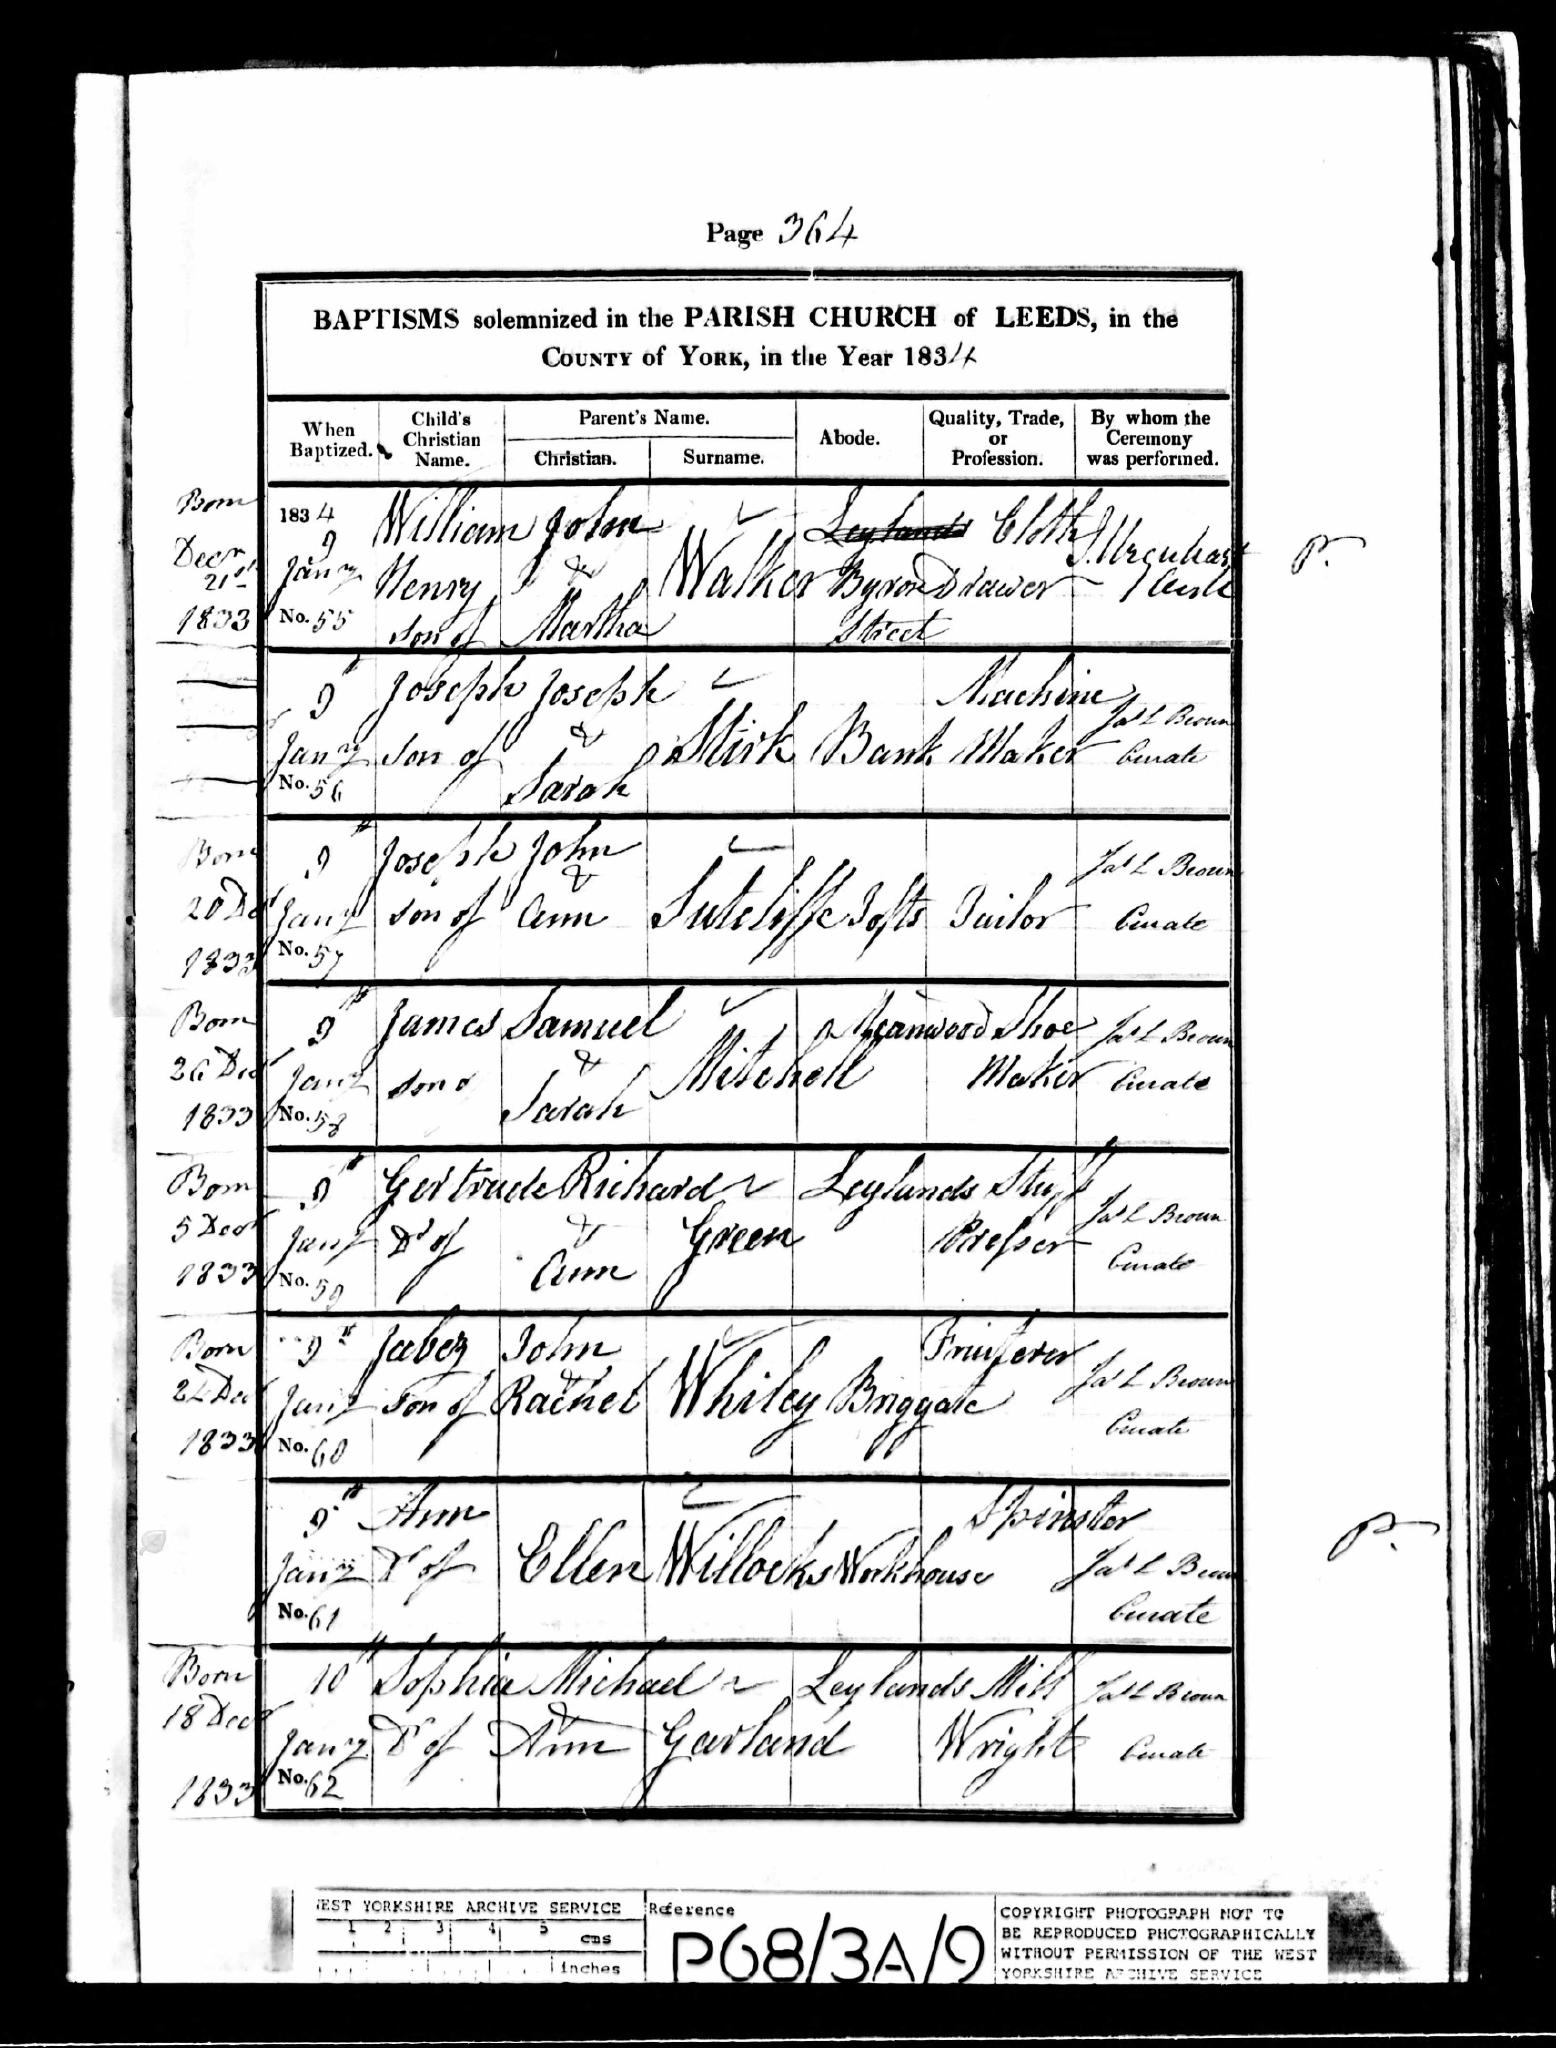 Page 364
BAPTISMS solemnized in the PARISH CHURCH of LEEDS, in the
COUNTY of YORK, in the Year 1834
When Baptized.
Child's Christian Name.
Parent's Name.
Christian.
Surname.
Abode.
Quality, Trade, or Profession.
By whom the Ceremony was performed.
Born
Decr
21st
1833
1834
9
Jany
No. 55
William
Henry
son of
John
&
Martha
Walker
Leylands
Byron
Street
Cloth
Drawer
J. Urquhart
Curate
P.
9th
Jany
No. 56
Joseph
son of
Joseph
&
Sarah
Mirk
Bank
Machine
Maker
Jas L Brown
Curate
Born
20 Decr
1833
9th
Jany
No. 57
Joseph
son of
John
&
Ann
Sutcliffe
Tofts
Tailor
Jas L Brown
Curate
Born
26 Decr
1833
9th
Jany
No. 58
James
son o
Samuel
&
Sarah
Mitchell
Meanwood
Shoe
Maker
Jas L Brown
Curate
Born
5 Decr
1833
9th
Jany
No. 59
Gertrude
Dr of
Richard
&
Ann
Green
Leylands
Stuff
Presser
Jas L Brown
Curate
Born
24 Decr
1833
9th
Jany
No. 60
Jabez
son of
John
&
Rachel
Whiley
Briggate
Fruiterer
Jas L Brown
Curate
9th
Jany
No. 61
Ann
Dr of
Ellen
Willocks
Workhouse
Spinster
Jas L Brown
Curate
P.
Born
18 Decr
1833
10th
Jany
No. 62
Sophia
Dr of
Michael
&
Ann
Garland
Leylands
Mill
Wright
Jas L Brown
Curate
WEST YORKSHIRE ARCHIVE SERVICE
1 2 3 4 5
cms
inches
Reference
P68/3A/9
COPYRIGHT PHOTOGRAPH NOT TO
BE REPRODUCED PHOTOGRAPHICALLY
WITHOUT PERMISSION OF THE WEST
YORKSHIRE ARCHIVE SERVICE